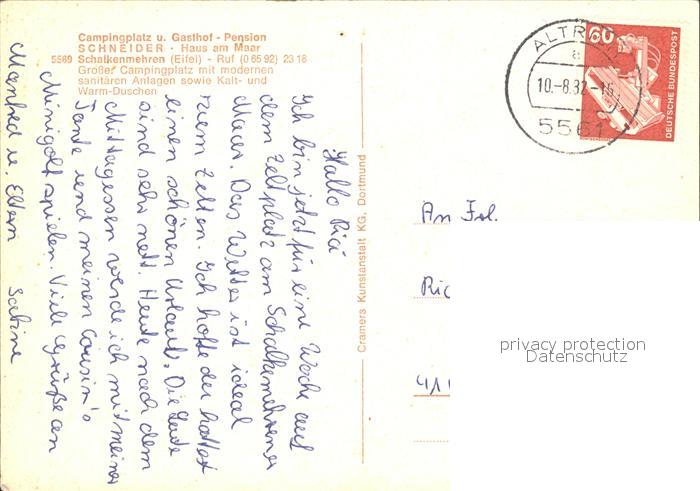 Campingplatz u. Gasthof - Pension
SCHNEIDER · Haus am Maar
5569 Schalkenmehren (Eifel) - Ruf (0 65 92) 23 18
Großer Campingplatz mit modernen
sanitären Anlagen sowie Kalt- und
Warm-Duschen
Hallo Rici
Ich bin jetzt für eine Woche auf
dem Zeltplatz am Schalkenmehrener
Maar. Das Wetter ist ideal
zum Zelten. Ich hoffe du hattest
einen schönen Urlaub. Die Leute
sind sehr nett. Heute nach dem
Mittagessen werde ich mit meiner
Tante und meinen Cousin's
Minigolf spielen. Viele Grüße an
Manfred u. Eltern Sabine
Cramers Kunstanstalt KG, Dortmund
60
DEUTSCHE BUNDESPOST
ALTR
a
10.-8.82-15
5561
An Frl.
Ric
41
privacy protection
Datenschutz